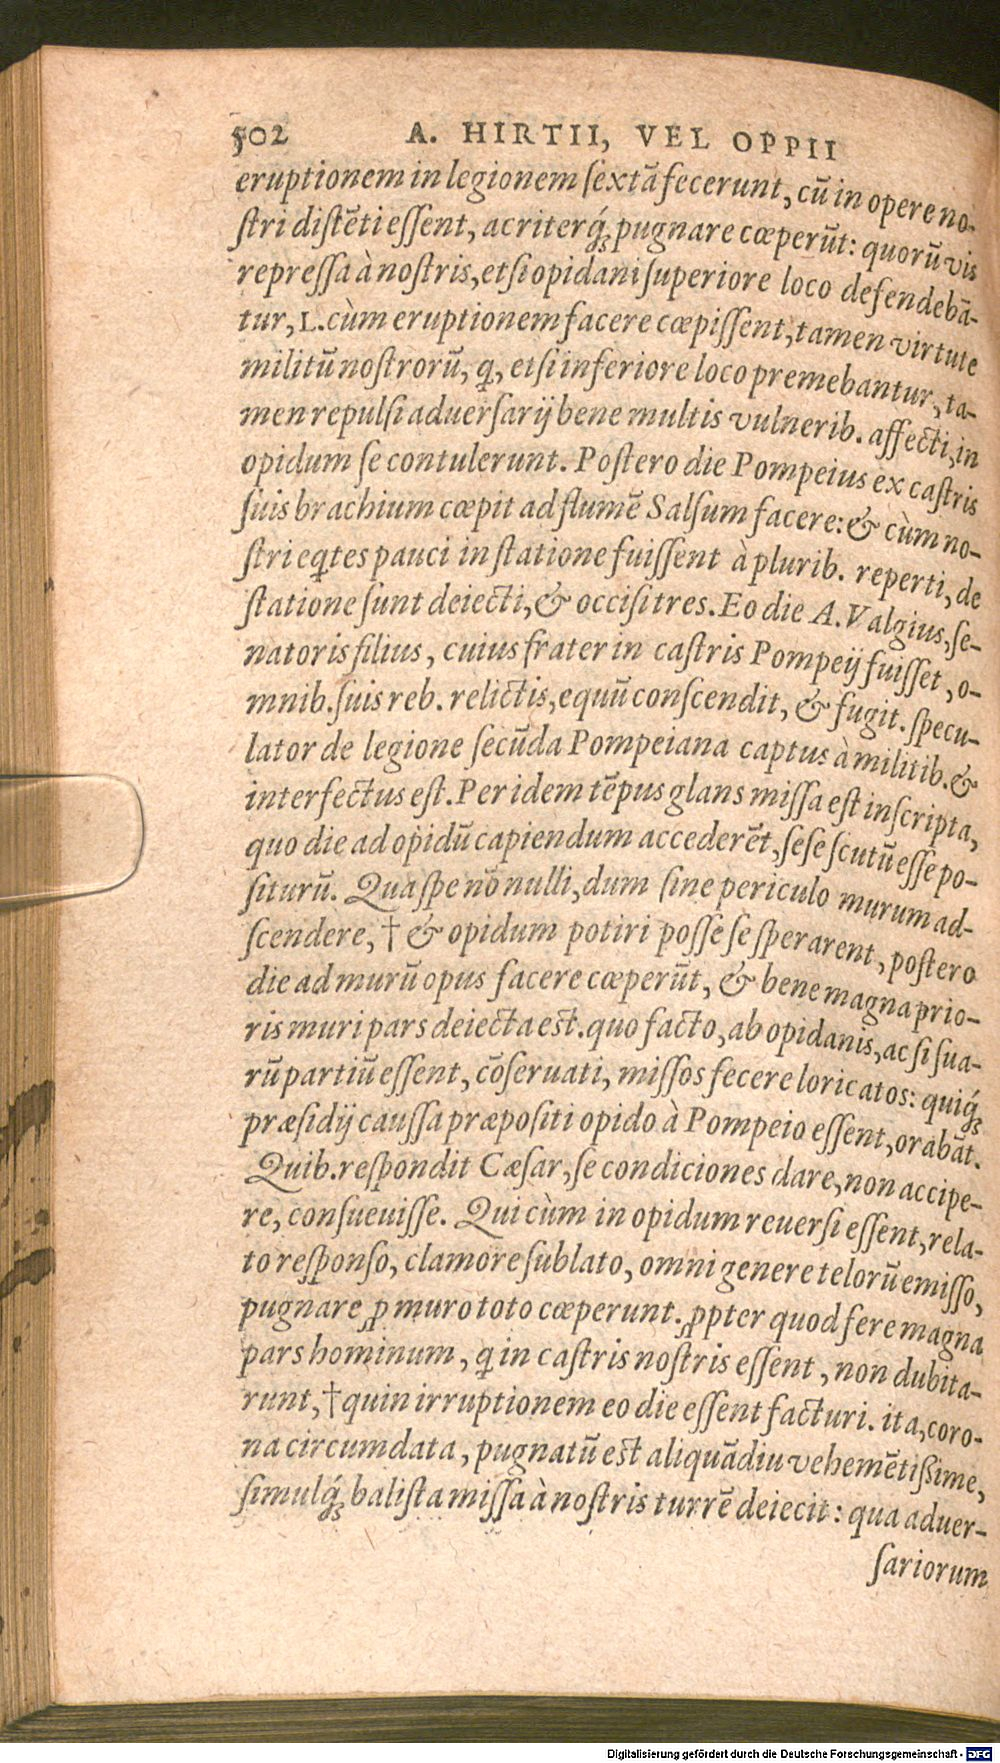 502 A. HIRTII, VEL OPPII
eruptionem in legionem ſextā fecerunt, cū in opere no-
ſtri diſtēti eſſent, acriterq́ꝫ pugnare cœperūt: quorū vis
repreſſa à noſtris, etſi opidani ſuperiore loco defendebā-
tur, L. cùm eruptionem facere cœpiſſent, tamen virtute
militū noſtrorū, q̃, etſi inferiore loco premebantur, ta-
men repulſi aduerſarij bene multis vulnerib. affecti, in
opidum ſe contulerunt. Poſtero die Pompeius ex caſtris
ſuis brachium cœpit ad flumē Salſum facere: & cùm no-
ſtri eq̃tes pauci in ſtatione fuiſſent à plurib. reperti, de
ſtatione ſunt deiecti, & occiſi tres. Eo die A. Valgius, ſe-
natoris filius, cuius frater in caſtris Pompeij fuiſſet, o-
mnib. ſuis reb. relictis, equū conſcendit, & fugit. ſpecu-
lator de legione ſecūda Pompeiana captus à militib. &
interfectus eſt. Per idem tēpus glans miſſa eſt inſcripta,
quo die ad opidū capiendum accederēt, ſeſe ſcutū eſſe po-
ſiturū. Qua ſpe nō nulli, dum ſine periculo murum ad-
ſcendere, † & opidum potiri poſſe ſe ſperarent, poſtero
die ad murū opus facere cœperūt, & bene magna prio-
ris muri pars deiecta eſt. quo facto, ab opidanis, ac ſi ſua-
rū partiū eſſent, cōſeruati, miſſos fecere loricatos: quiq́ꝫ
præſidij cauſſa præpoſiti opido à Pompeio eſſent, orabāt.
Quib. reſpondit Cæſar, ſe condiciones dare, non accipe-
re, conſueuiſſe. Qui cùm in opidum reuerſi eſſent, rela-
to reſponſo, clamore ſublato, omni genere telorū emiſſo,
pugnare ꝓ muro toto cœperunt. ꝓpter quod fere magna
pars hominum, q̃ in caſtris noſtris eſſent, non dubita-
runt, † quin irruptionem eo die eſſent facturi. ita, coro-
na circumdata, pugnatū eſt aliquādiu vehemētißime,
ſimulq́ꝫ baliſta miſſa à noſtris turrē deiecit: qua aduer-
ſariorum
Digitalisierung gefördert durch die Deutsche Forschungsgemeinschaft - DFG